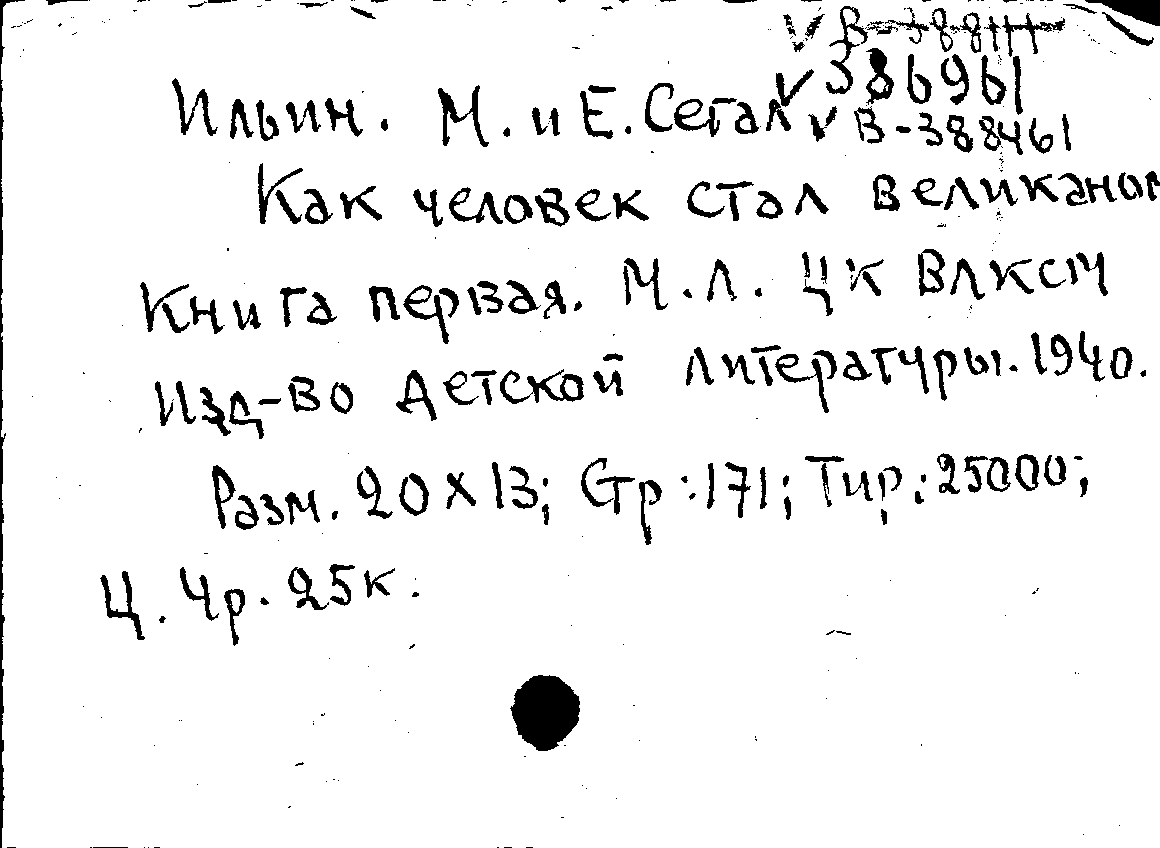 ✓ В-388111
✓ 386961
Ильин. М. и Е. Сегал ✓ В-388461
Как человек стал великаном
Книга первая. М.Л. ЦК ВЛКСМ
Изд-во детской литературы. 1940.
Разм. 20 x 13; Стр: 171; Тир: 25000;
Ц. 4р. 25к.